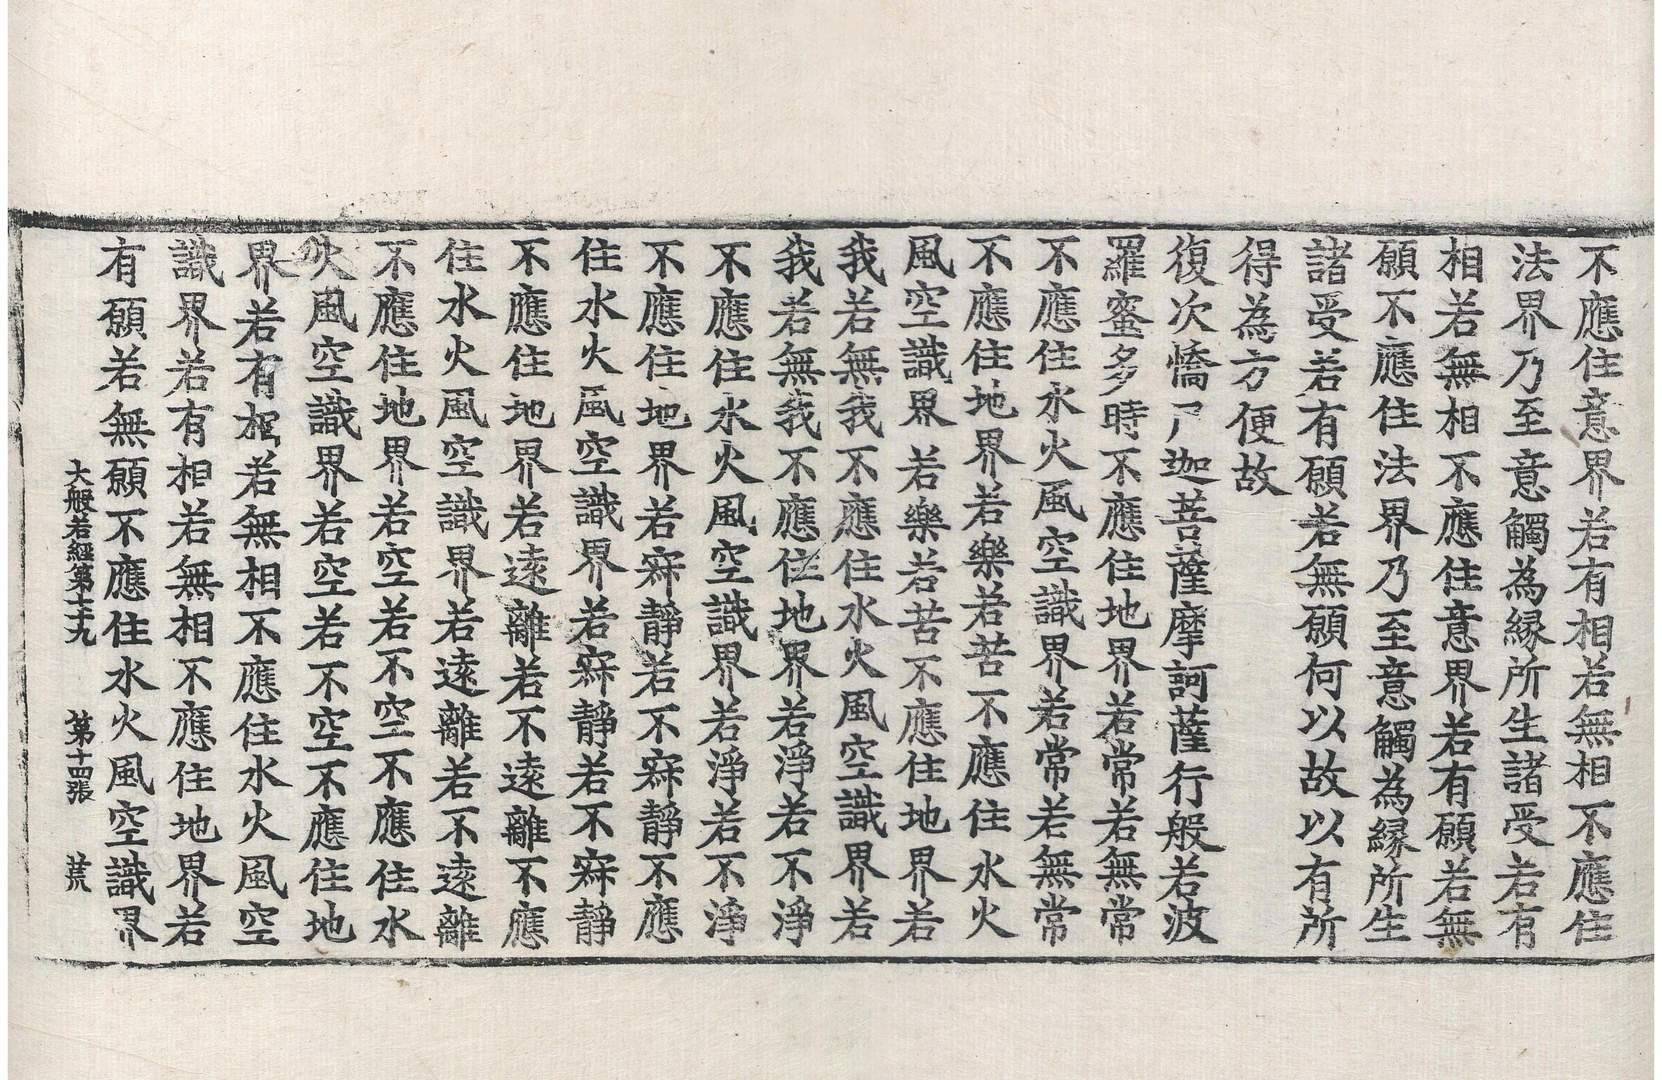 不應住意界若有相若無相不應住
法界乃至意觸為縁所生諸受若有
相若無相不應住意界若有願若無
願不應住法界乃至意觸為縁所生
諸受若有願若無願何以故以有所
得為方便故
復次憍尸迦菩薩摩訶薩行般若波
羅蜜多時不應住地界若常若無常
不應住水火風空識界若常若無常
不應住地界若樂若苦不應住水火
風空識界若樂若苦不應住地界若
我若無我不應住水火風空識界若
我若無我不應住地界若淨若不淨
不應住水火風空識界若淨若不淨
不應住地界若寂靜若不寂靜不應
住水火風空識界若寂靜若不寂靜
不應住地界若遠離若不遠離不應
住水火風空識界若遠離若不遠離
不應住地界若空若不空不應住水
火風空識界若空若不空不應住地
界若有相若無相不應住水火風空
識界若有相若無相不應住地界若
有願若無願不應住水火風空識界
大般若經第七十九 第十四張 荒